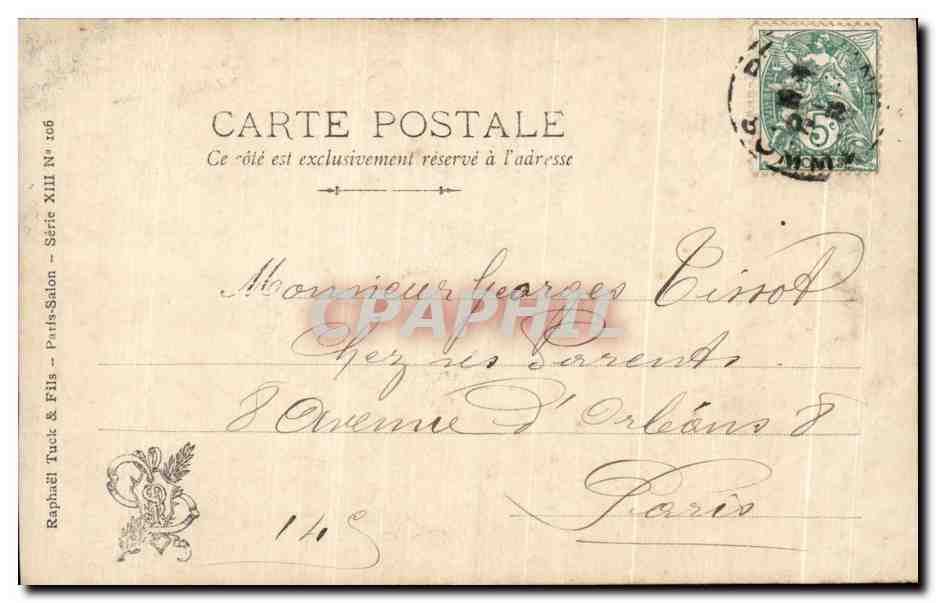 CARTE POSTALE
Ce côté est exclusivement réservé à l'adresse
5c
Monsieur Georges Tissot
CPAPHIL
Chez ses Parents
8 Avenue d'Orléans 8
Paris
145
Raphaël Tuck & Fils - Paris-Salon - Série XIII No 106